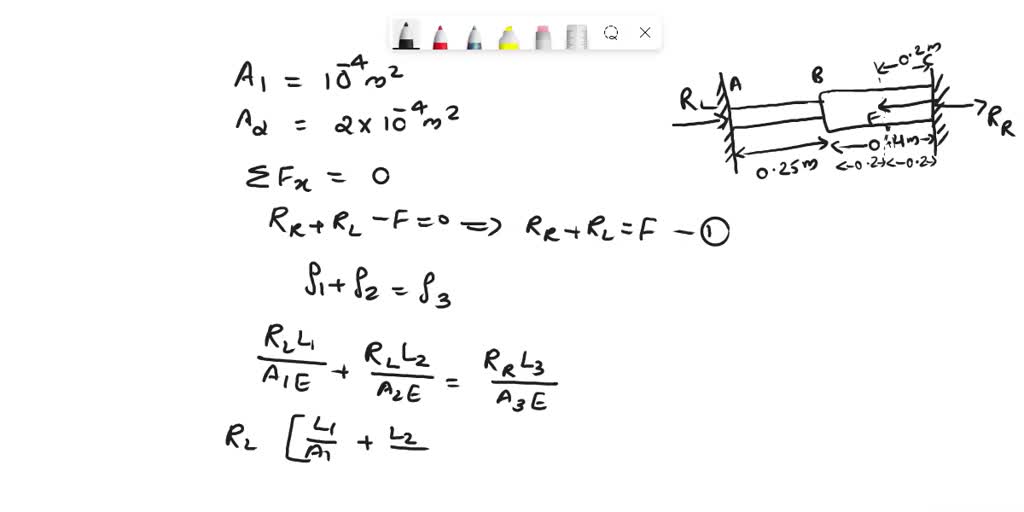 A1 = 10^-4 m^2
A2 = 2 × 10^-4 m^2
ΣFx = 0
RR + RL - F = 0 => RR + RL = F - ①
δ1 + δ2 = δ3
RL L1 / A1E + RL L2 / A2E = RR L3 / A3E
RL [ L1 / A1 + L2
0.2m
A B C
RL F RR
0.25m 0.4m
0.2 0.2